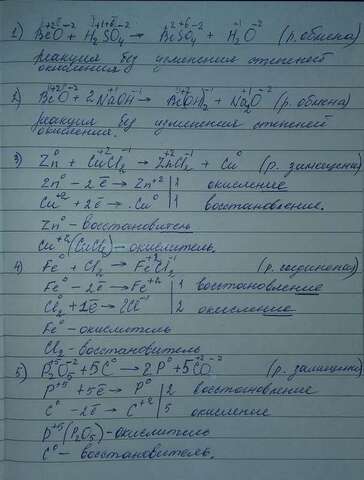 1) Be⁺²O⁻² + H₂⁺¹S⁺⁶O₄⁻² → Be⁺²S⁺⁶O₄⁻² + H₂⁺¹O⁻² (р. обмена)
реакция без изменения степеней
окисления
2) Be⁺²O⁻² + 2NaOH → Be(OH)₂ + Na₂O⁻² (р. обмена)
реакция без изменения степеней
окисления.
3) Zn⁰ + Cu⁺²Cl₂⁻¹ → Zn⁺²Cl₂⁻¹ + Cu⁰ (р. замещения)
Zn⁰ - 2ē → Zn⁺² | 1 окисление
Cu⁺² + 2ē → Cu⁰ | 1 восстановление.
Zn⁰ - восстановитель
Cu⁺²(CuCl₂) - окислитель.
4) Fe⁰ + Cl₂⁰ → Fe⁺²Cl₂⁻¹ (р. соединения)
Fe⁰ - 2ē → Fe⁺² | 1 восстановление
Cl₂⁰ + 1ē → 2Cl⁻¹ | 2 окисление
Fe⁰ - окислитель
Cl₂ - восстановитель
5) P₂⁺⁵O₅⁻² + 5C⁰ → 2P⁰ + 5C⁺²O⁻² (р. замещения)
P⁺⁵ + 5ē → P⁰ | 2 восстановление
C⁰ - 2ē → C⁺² | 5 окисление
P⁺⁵(P₂O₅) - окислитель
C⁰ - восстановитель.